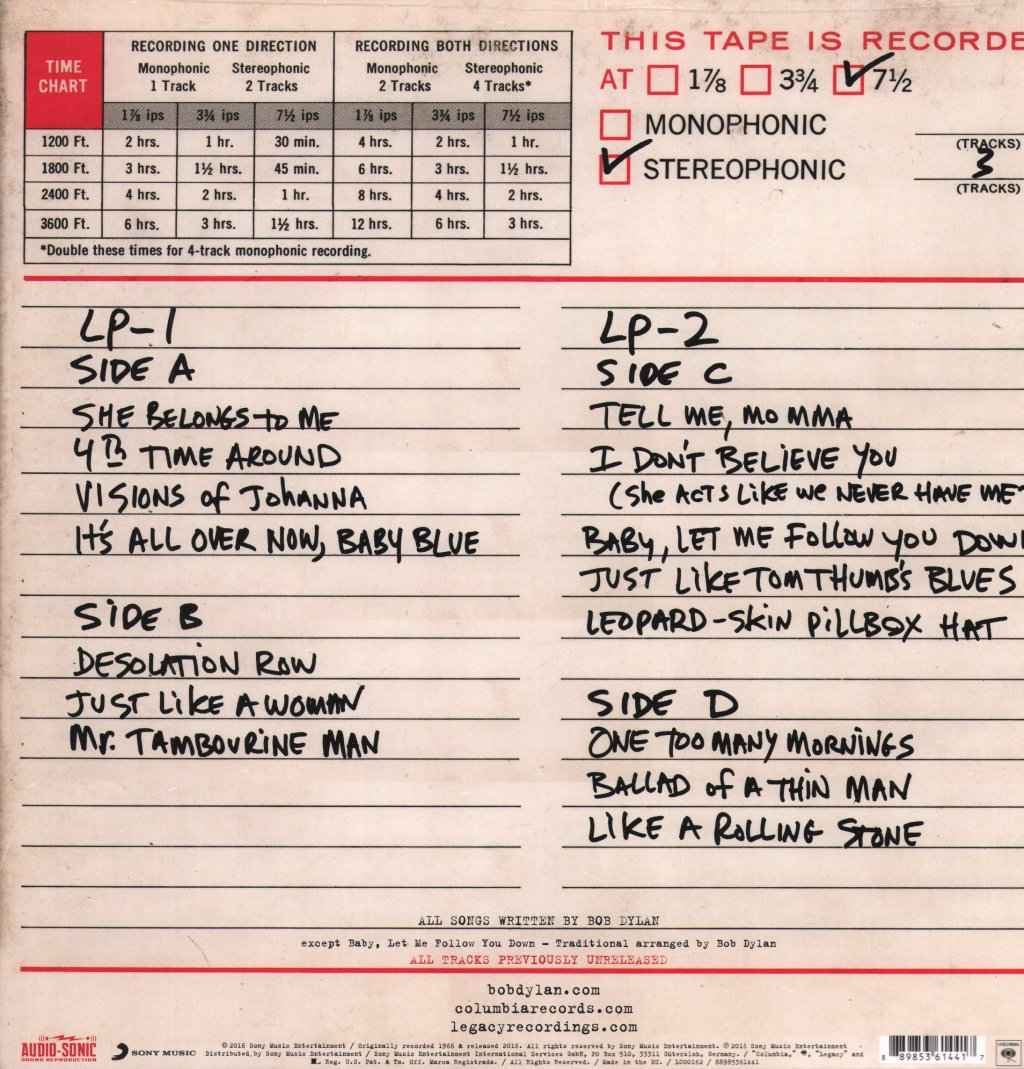 TIME CHART
RECORDING ONE DIRECTION RECORDING BOTH DIRECTIONS
Monophonic 1 Track Stereophonic 2 Tracks Monophonic 2 Tracks Stereophonic 4 Tracks*
1⅞ ips 3¾ ips 7½ ips 1⅞ ips 3¾ ips 7½ ips
1200 Ft. 2 hrs. 1 hr. 30 min. 4 hrs. 2 hrs. 1 hr.
1800 Ft. 3 hrs. 1½ hrs. 45 min. 6 hrs. 3 hrs. 1½ hrs.
2400 Ft. 4 hrs. 2 hrs. 1 hr. 8 hrs. 4 hrs. 2 hrs.
3600 Ft. 6 hrs. 3 hrs. 1½ hrs. 12 hrs. 6 hrs. 3 hrs.
*Double these times for 4-track monophonic recording.
THIS TAPE IS RECORDE
AT 1⅞ 3¾ 7½
MONOPHONIC
(TRACKS)
STEREOPHONIC 3
(TRACKS)
LP-1
SIDE A
SHE BELONGS to ME
4th TIME AROUND
VISIONS of JOHANNA
It's ALL OVER NOW, BABY BLUE
SIDE B
DESOLATION ROW
JUST LIKE A WOMAN
Mr. TAMBOURINE MAN
LP-2
SIDE C
TELL ME, MOMMA
I DON'T BELIEVE YOU
(She ACTS LIKE we NEVER HAVE MET
BABY, LET ME FOLLOW YOU DOWN
JUST LIKE TOM THUMB'S BLUES
LEOPARD-SKIN PILLBOX HAT
SIDE D
ONE TOO MANY MORNINGS
BALLAD of A THIN MAN
LIKE A ROLLING STONE
ALL SONGS WRITTEN BY BOB DYLAN
except Baby, Let Me Follow You Down - Traditional arranged by Bob Dylan
ALL TRACKS PREVIOUSLY UNRELEASED
bobdylan.com
columbiarecords.com
legacyrecordings.com
AUDIO-SONIC
SOUND REPRODUCTION
SONY MUSIC
© 2016 Sony Music Entertainment / Originally recorded 1966 & released 2016. All rights reserved by Sony Music Entertainment. ℗ 2016 Sony Music Entertainment /
Distributed by Sony Music Entertainment / Sony Music Entertainment International Services GmbH, PO Box 510, 33311 Gütersloh, Germany. / "Columbia," "Legacy" and
Reg. U.S. Pat. & Tm. Off. Marca Registrada. / All Rights Reserved. / Made in the EU. / LC00162 / 88985361441
8 89853 61441 7
COLUMBIA